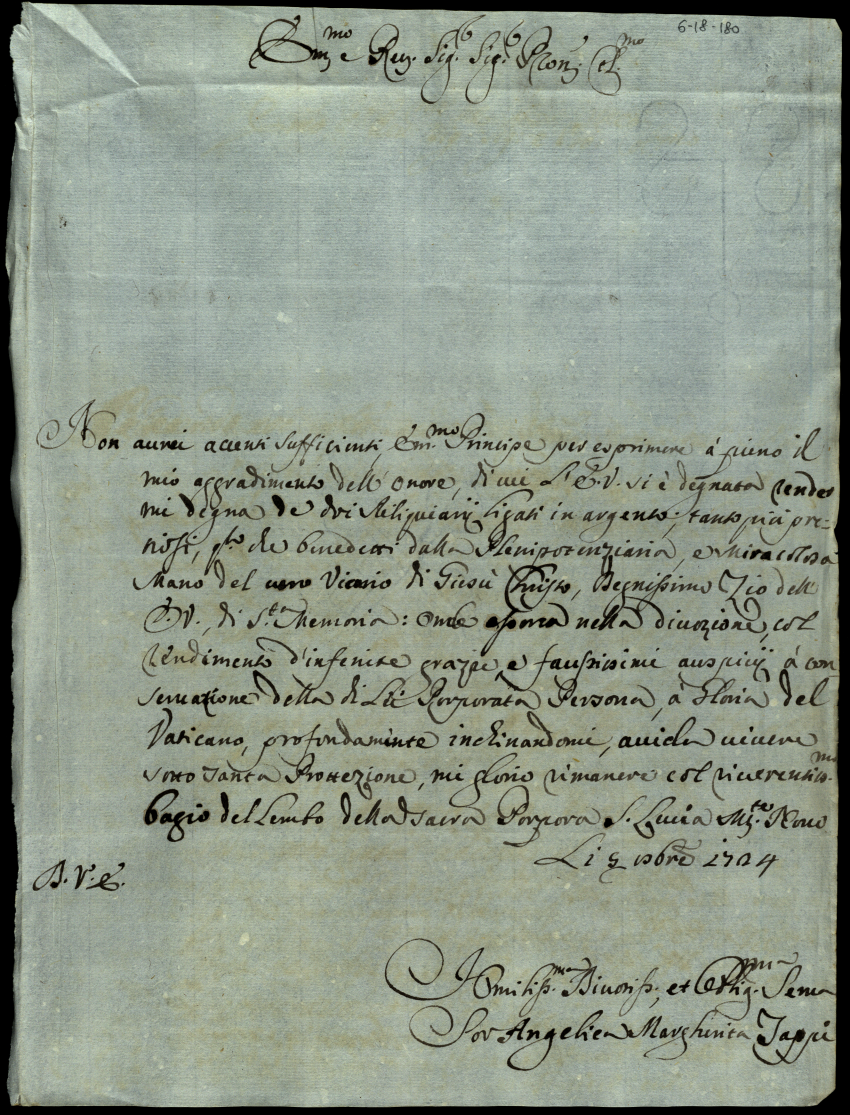 6-18-180
Em.mo e Rev. Sig.r Sig.r Pron. Col.mo
Non aurei accenti sufficienti Em.mo Principe per esprimere à pieno il
mio aggradimento dell'onore, di cui L'E.V. si è degnata render
mi degna de dui Reliquiarij ligati in argento, tanto più pre=
tiosi, q.to che benedetti dalla Plenipotenziaria, e Miracolosa
Mano del uero Vicario di Giesù Christo, Degnissimo Zio dell'
E.V., di S.ta Memoria: onde nella diuozione, col
rendimento d'infinite grazie, e faustissimi auspicij à con
seruazione della di Lei Porporata Persona, à Gloria del
Vaticano, profondamente inchinandomi, auida uiuere
sotto tanta Prottezione, mi glorio rimanere col riuerentiss.mo
bagio del Lembo della Sacra Porpora S. Lucia M.te Nouo
Li 5 obre 1724
D. V. E.
Humiliss.ma Diuotiss., et Obblig.ma Serua
Sor Angelica Margherita Jappi